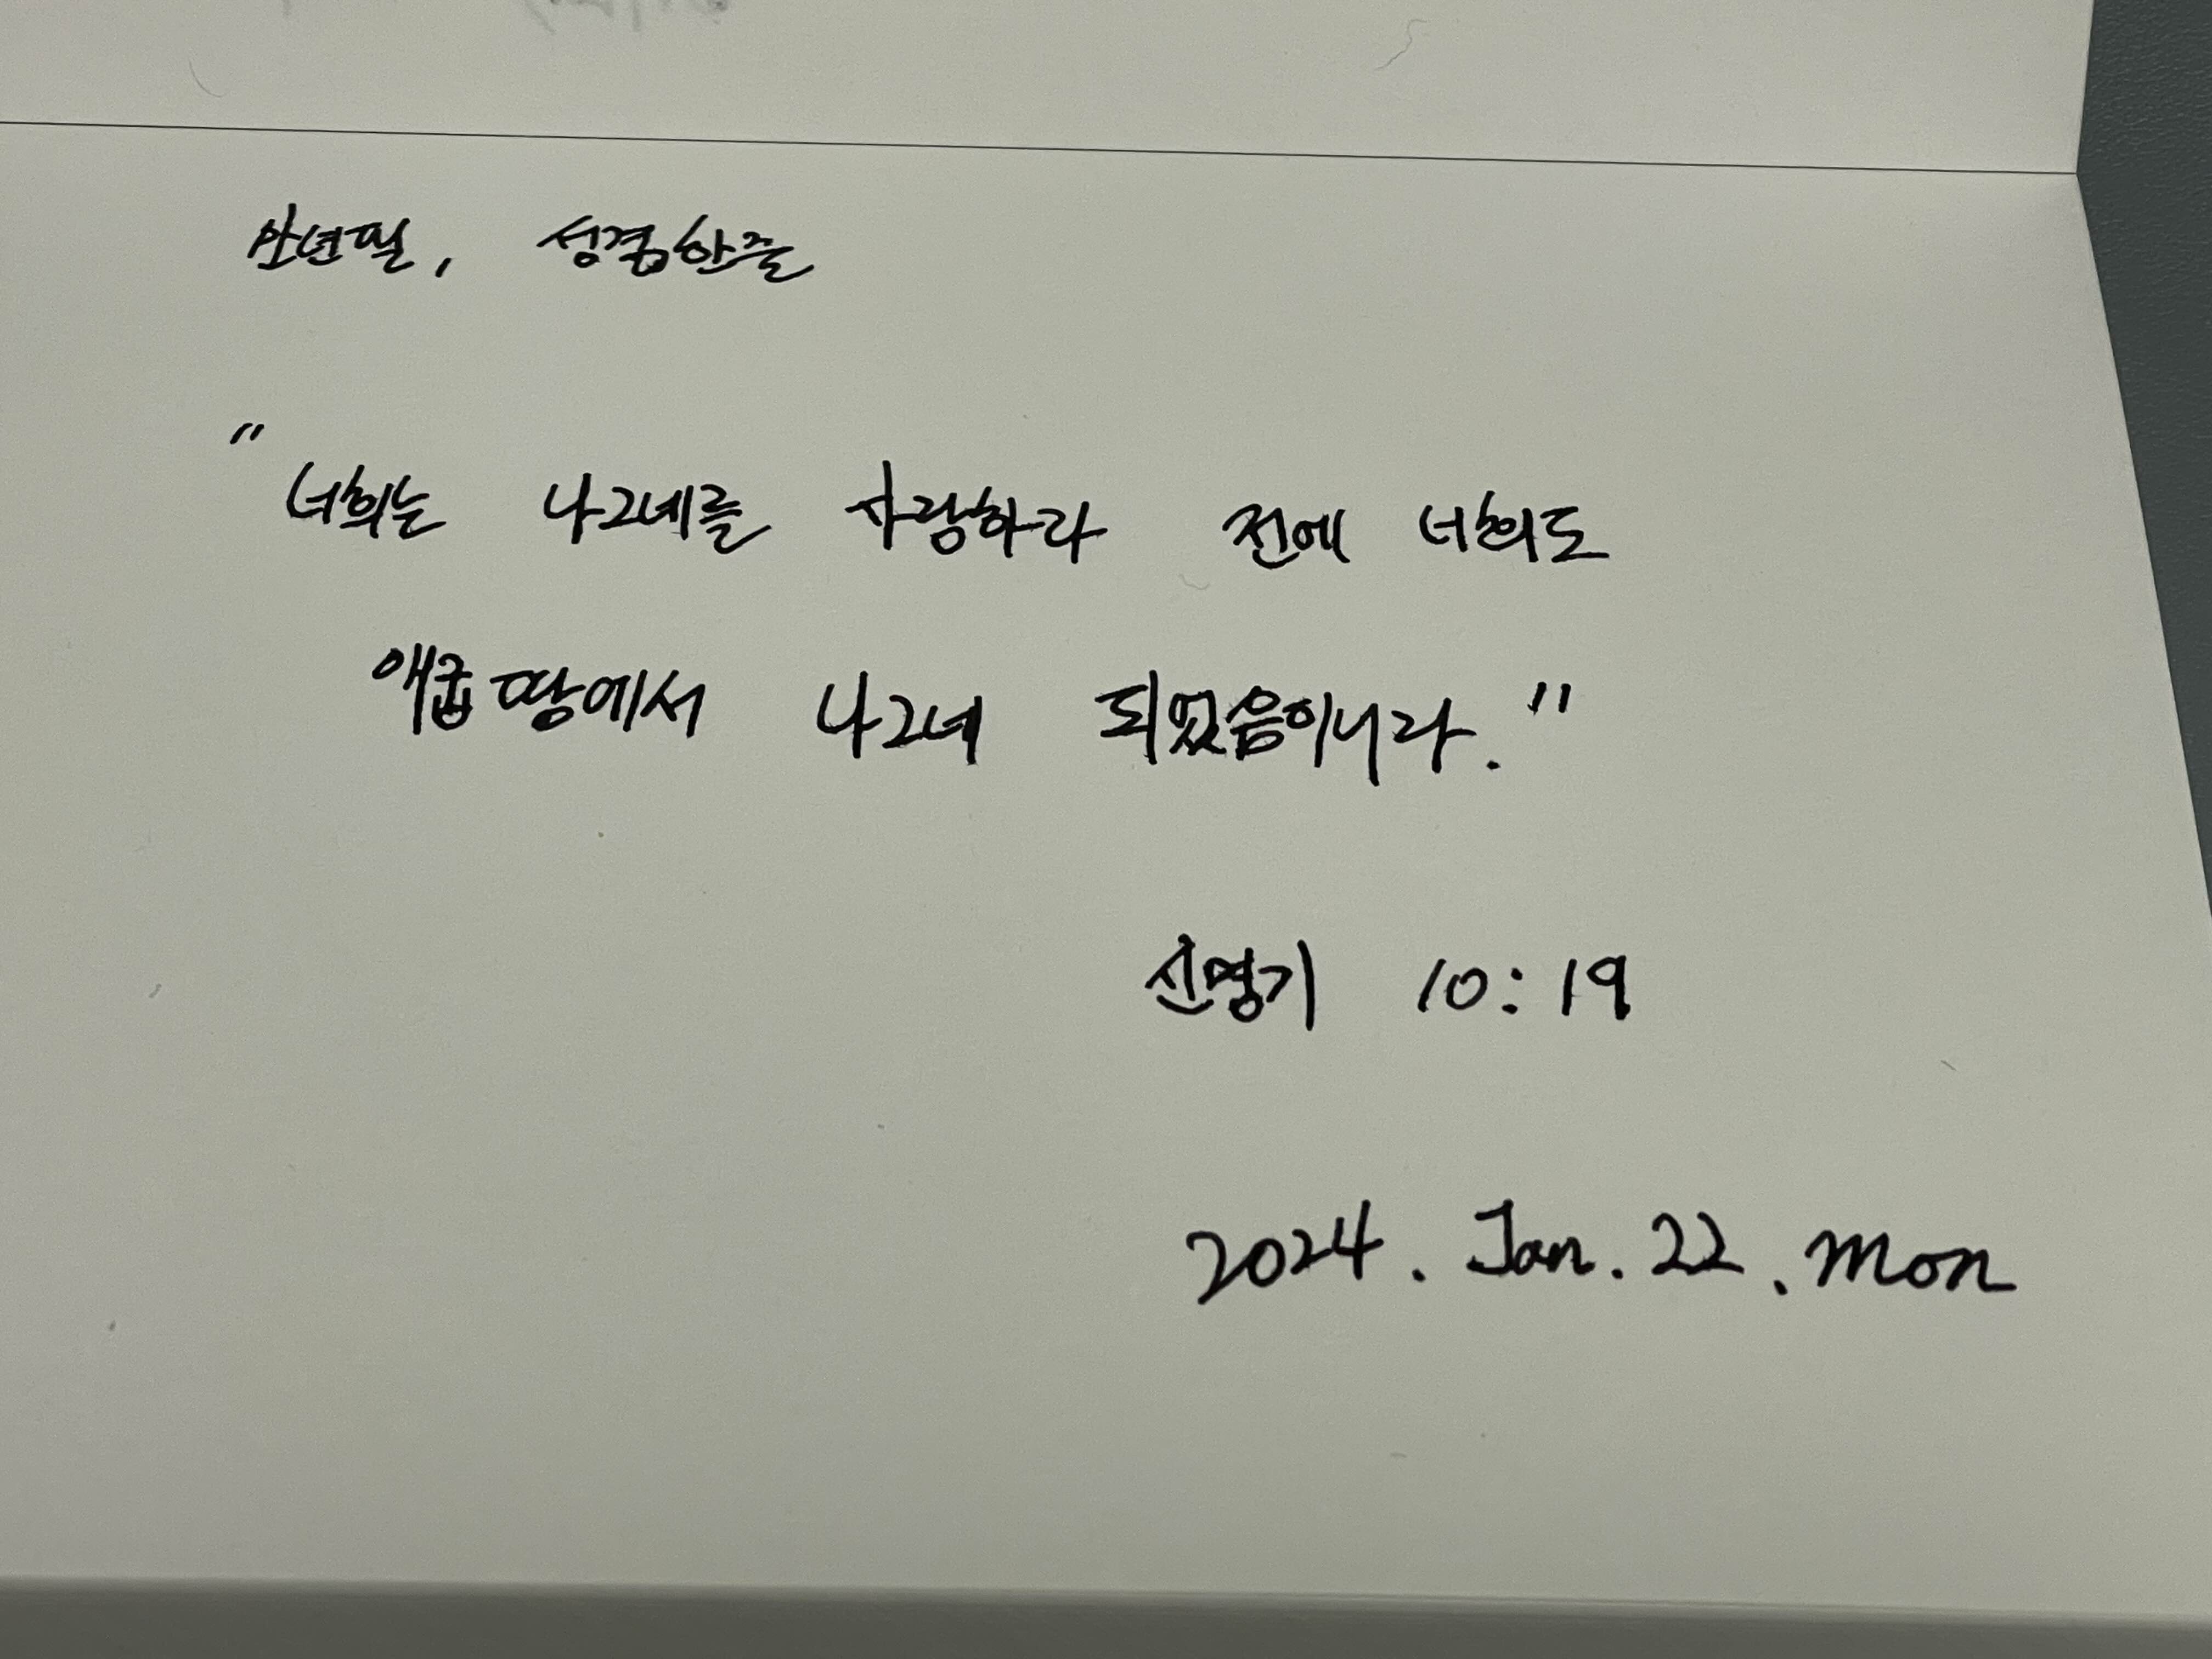 만년필, 성경한줄
"너희는 나그네를 사랑하라 전에 너희도
애굽땅에서 나그네 되었음이니라."
신명기 10:19
2024. Jan. 22. Mon